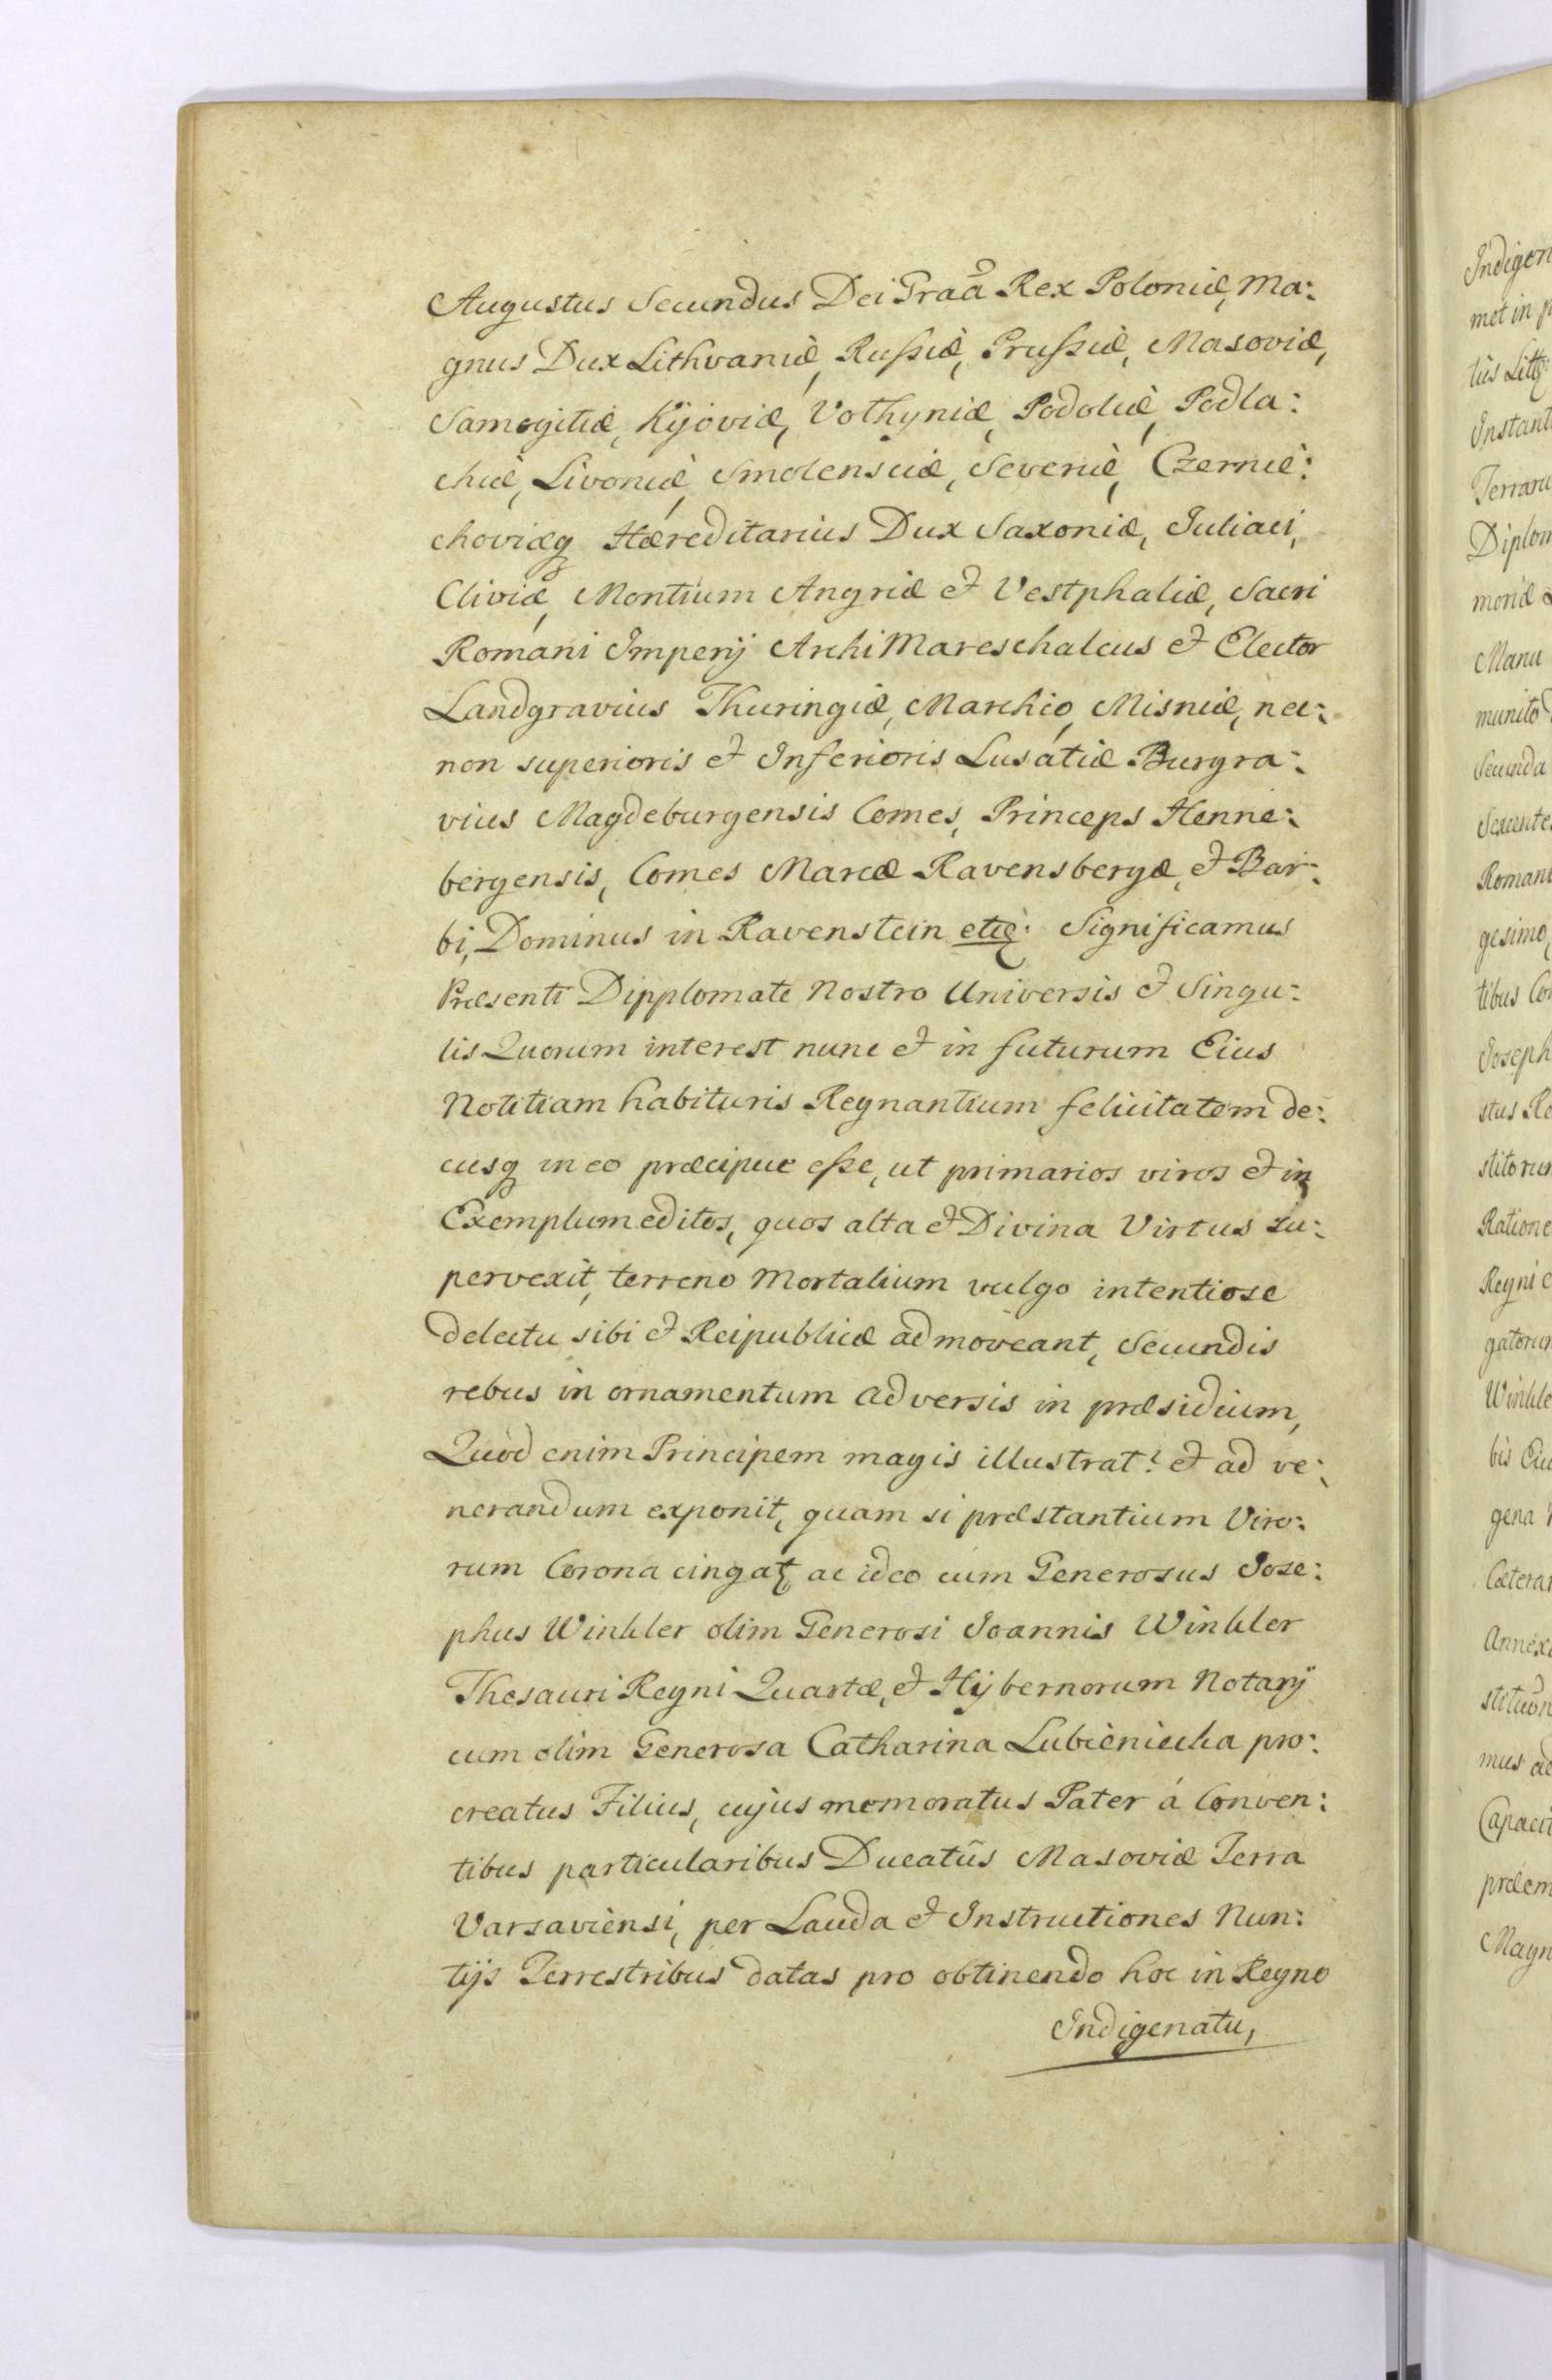 Augustus Secundus Dei Graã Rex Poloniæ, Ma:
gnus Dux Lithvaniæ, Rußiæ, Prußiæ, Masoviæ,
Samogitiæ, Kijoviæ, Vothyniæ, Podoliæ, Podla:
chiæ, Livoniæ, Smolensciæ, Severiæ, Czernie:
choviæq Hæreditarius Dux Saxoniæ, Juliaci,
Cliviæ, Montium Angriæ et Vestphaliæ, Sacri
Romani Imperij ArchiMareschalcus et Elector
Landgravius Thuringiæ, Marchio, Misniæ, nec:
non superioris et Inferioris Lusatiæ Burgra:
vius Magdeburgensis Comes, Princeps Henne:
bergensis, Comes Marcæ Ravensbergæ, et Bar:
bi, Dominus in Ravenstein etcę: Significamus
Præsenti Dipplomate Nostro Universis et Singu:
lis Quorum interest nunc et in futurum Eius
Notitiam habituris Regnantium felicitatem de:
cusq in eo præcipue eße, ut primarios viros et in
Exemplum editos, quos alta et Divina Virtus su:
pervexit, terreno Mortalium vulgo intentiose
delectu sibi et Reipublicæ admoveant, Secundis
rebus in ornamentum adversis in præsidium,
Quod enim Principem magis illustrat? et ad ve:
nerandum exponit, quam si præstantium Viro:
rum Corona cingat, ac ideo cum Generosus Jose:
phus Winkler olim Generosi Joannis Winkler
Thesauri Regni Quartæ, et Hybernorum Notarij
cum olim Generosa Catharina Lubieniecka pro:
creatus Filius, cujus memoratus Pater á Conven:
tibus particularibus Ducatûs Masoviæ Terra
Varsaviensi, per Lauda et Instructiones Nun:
tijs Terrestribus datas pro obtinendo hoc in Regno
Indigenatu,